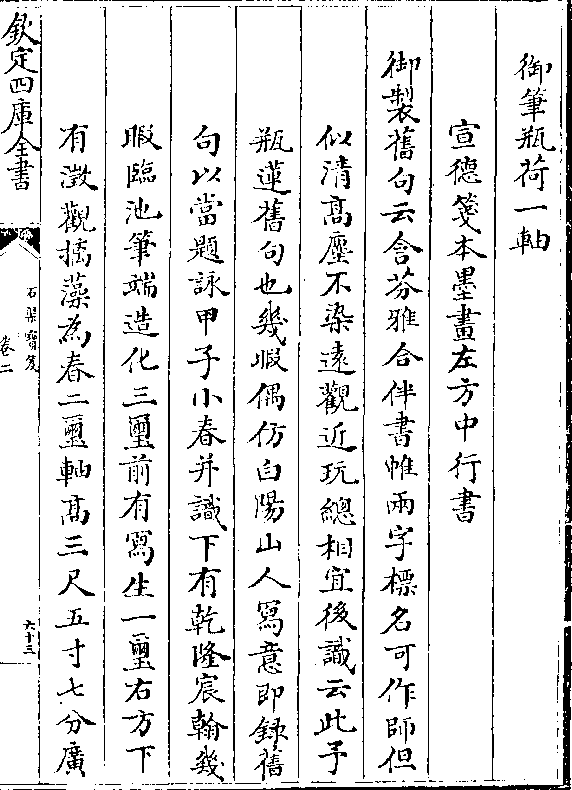 御筆瓶荷一軸
宣德箋本墨畫左方中行書
御製舊句云含芬雅合伴書帷兩字標名可作師但
似清髙塵不染逺觀近玩總相宜後識云此予
瓶蓮舊句也幾暇偶仿白陽山人寫意即録舊
句以當題詠甲子小春并識下有乾隆宸翰幾
暇臨池筆端造化三璽前有寫生一璽右方下
有澂觀摛藻為春二璽軸髙三尺五寸七分廣
欽定四庫全書
石渠寳笈
卷二
六十三